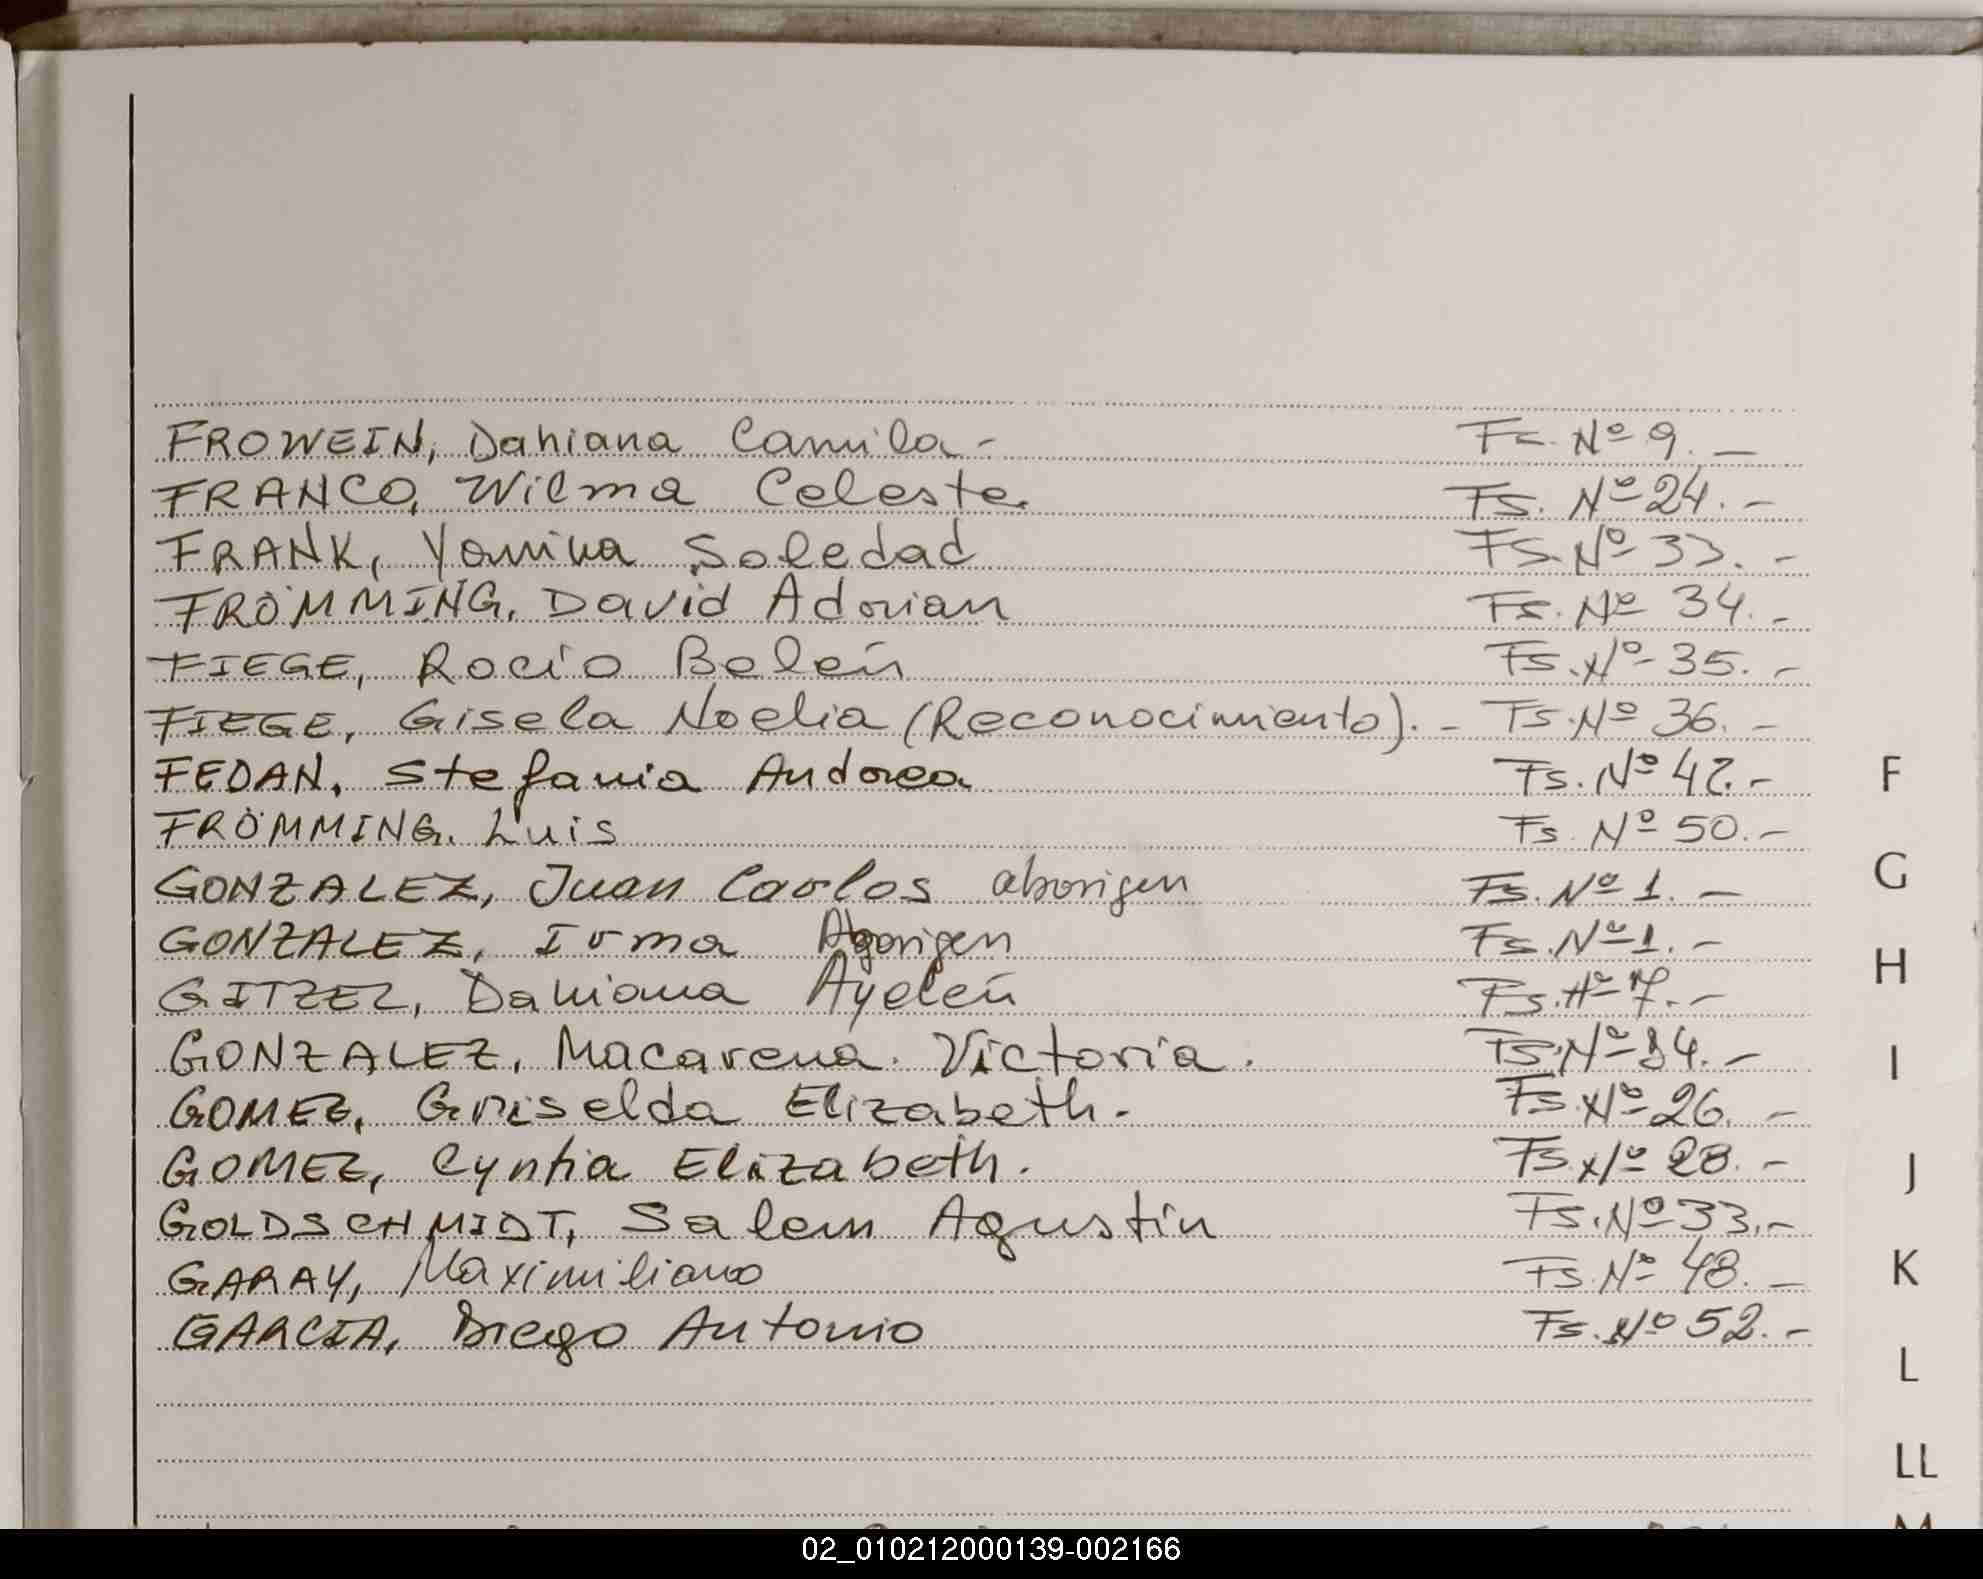 FROWEIN, Dahiana Camila - Fs. Nº 9. -
FRANCO, Wilma Celeste. Fs. Nº 24. -
FRANK, Yamina Soledad Fs. Nº 33. -
FRÖMMING, David Adrian Fs. Nº 34. -
FIEGE, Rocío Belén Fs. Nº 35. -
FIEGE, Gisela Noelia (Reconocimiento). - Fs. Nº 36. -
FEDAN, Stefania Andrea Fs. Nº 42. -
FRÖMMING, Luis Fs. Nº 50. -
GONZALEZ, Juan Carlos aborigen Fs. Nº 1. -
GONZALEZ, Irma Aborigen Fs. Nº 1. -
GITZEL, Dahiana Ayelén Fs. Nº 7. -
GONZALEZ, Macarena Victoria. Fs. Nº -
GOMEZ, Griselda Elizabeth. Fs. Nº 26. -
GOMEZ, Cyntia Elizabeth. Fs. Nº 28. -
GOLDSCHMIDT, Salem Agustín Fs. Nº 33. -
GARAY, Maximiliano Fs. Nº 48. -
GARCIA, Diego Antonio Fs. Nº 52. -
F
G
H
I
J
K
L
LL
M
02_010212000139-002166